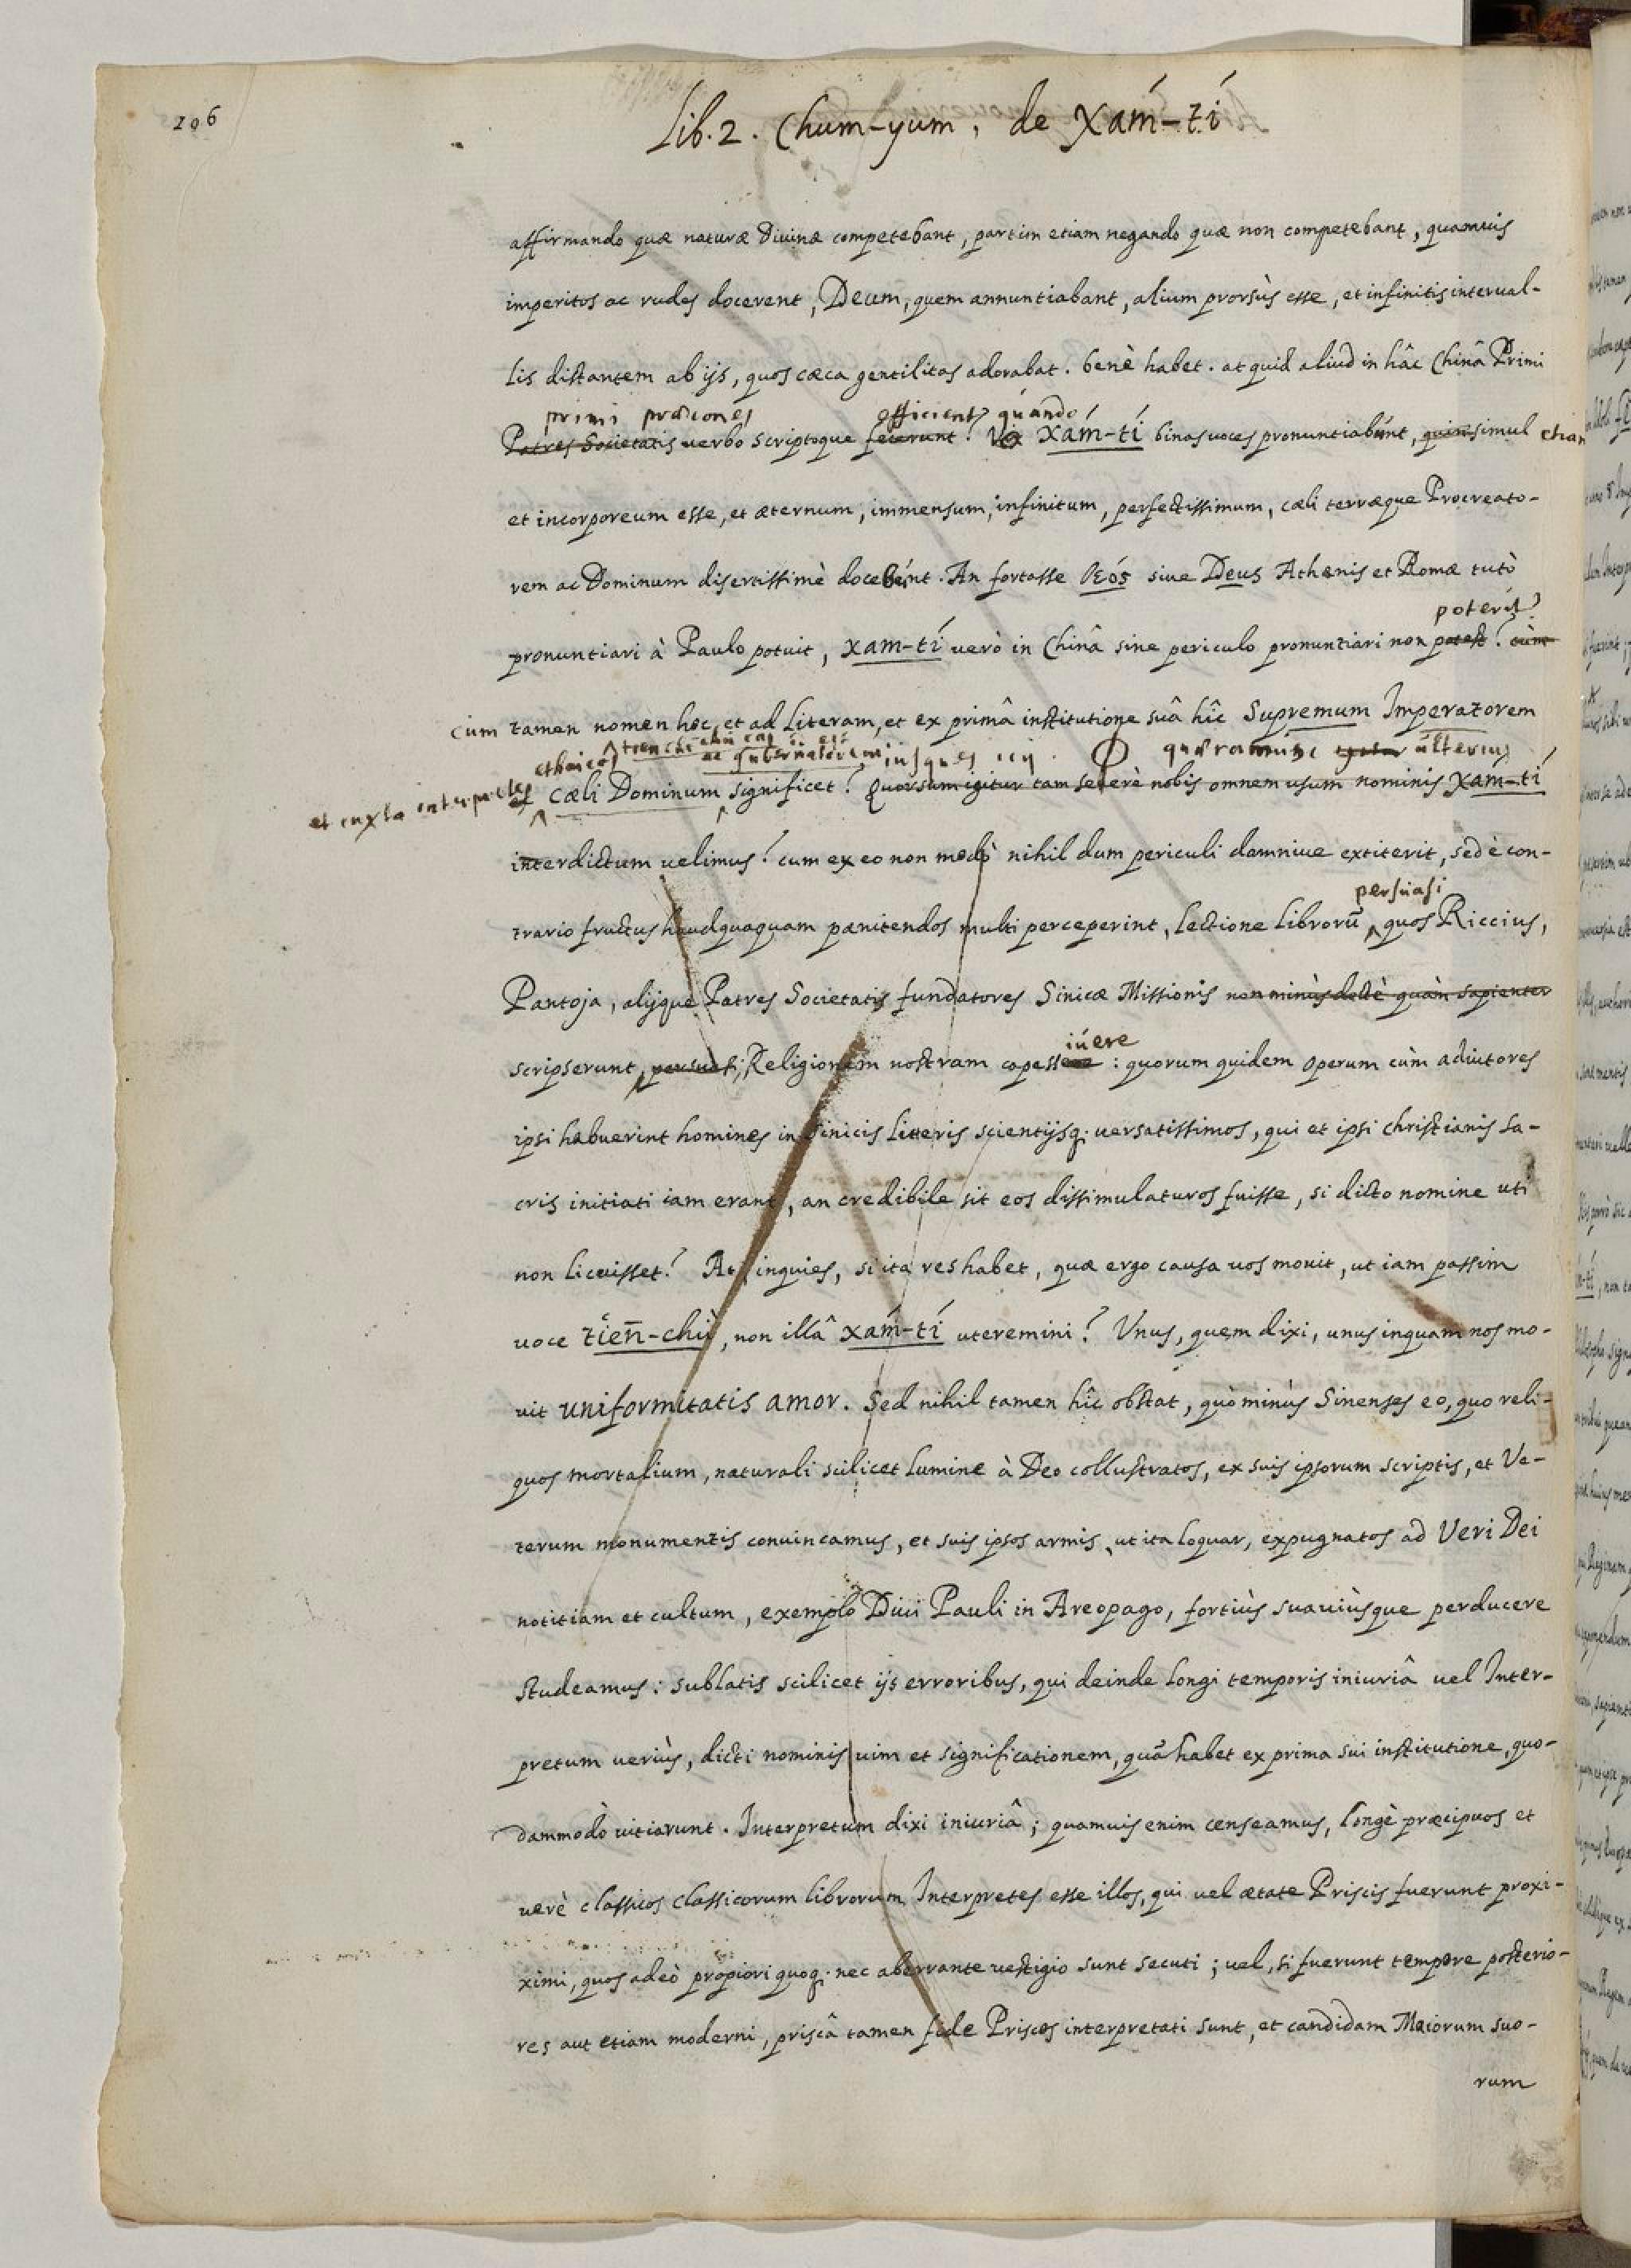 196
Lib. 2. Chum-yum, de Xám-tí
affirmando quæ naturæ Divinæ competebant, partim etiam negando quæ non competebant, quamuis
imperitos ac rudes docerent, Deum, quem annuntiabant, alium prorsùs esse, et infinitis interual-
lis distantem ab ijs, quos cæca gentilitas adorabat. benè habet. at quid aliud in hâc Chinâ Primi
primi præcones efficient? quando
Patres Societatis verbo scriptoque fecerunt? Xám-tí binas uoces pronuntiabunt, simul etiam
et incorporeum esse, et æternum, immensum, infinitum, perfectissimum, cæli terræque Procreato-
rem ac Dominum disertissimè docebunt. An fortasse Θεός siue Deus Athænis et Romæ tutò
poterit?
pronuntiari à Paulo potuit, xam-tí uerò in Chinâ sine periculo pronuntiari non potest? cùm
cum tamen nomen hoc, et ad literam, et ex primâ institutione suâ hîc Supremum Imperatorem
ethnicos tien chi chu ac gubernatorem quæramus ulterius
et iuxta interpretes
et cæli Dominum significet? Quorsum igitur tam seuerè nobis omnem usum nominis Xam-tí
interdictum uelimus? cum ex eo non modò nihil dum periculi damniue extiterit, sed è con-
persuasi
trario fructus haudquaquam pænitendos multi perceperint, lectione librorū quos Riccius,
Pantoja, alijque Patres Societatis fundatores Sinicæ Missionis non minùs doctè quàm sapienter
iuere
scripserunt, persuasi, Religionem nostram capessere: quorum quidem operum cùm adiutores
ipsi habuerint homines in Sinicis literis scientijsq; uersatissimos, qui et ipsi christianis sa-
cris initiati iam erant, an credibile sit eos dissimulaturos fuisse, si dicto nomine uti
non licuisset? At, inquies, si ita res habet, quæ ergo causa uos mouit, ut iam passim
uoce tien-chù, non illâ xám-tí uteremini? Vnus, quem dixi, unus inquam nos mo-
uit uniformitatis amor. Sed nihil tamen hîc obstat, quò minùs Sinenses eo, quo reli-
quos mortalium, naturali scilicet lumine à Deo collustratos, ex suis ipsorum scriptis, et Ve-
terum monumentis conuincamus, et suis ipsos armis, ut ita loquar, expugnatos ad Veri Dei
notitiam et cultum, exemplo Diui Pauli in Areopago, fortiùs suauiùsque perducere
studeamus: sublatis scilicet ijs erroribus, qui deinde longi temporis iniuriâ uel Inter-
pretum ueriùs, dicti nominis uim et significationem, quā habet ex prima sui institutione, quo-
dammodò uitiarunt. Interpretum dixi iniuriâ; quamuis enim censeamus, longè præcipuos et
uerè classicos classicorum librorum Interpretes esse illos, qui uel ætate Priscis fuerunt proxi-
ximi, quos adeò propiori quoq; nec aberrante uestigio sunt secuti; uel, si fuerunt tempore posterio-
res aut etiam moderni, priscâ tamen fide Priscos interpretati sunt, et candidam Maiorum suo-
rum